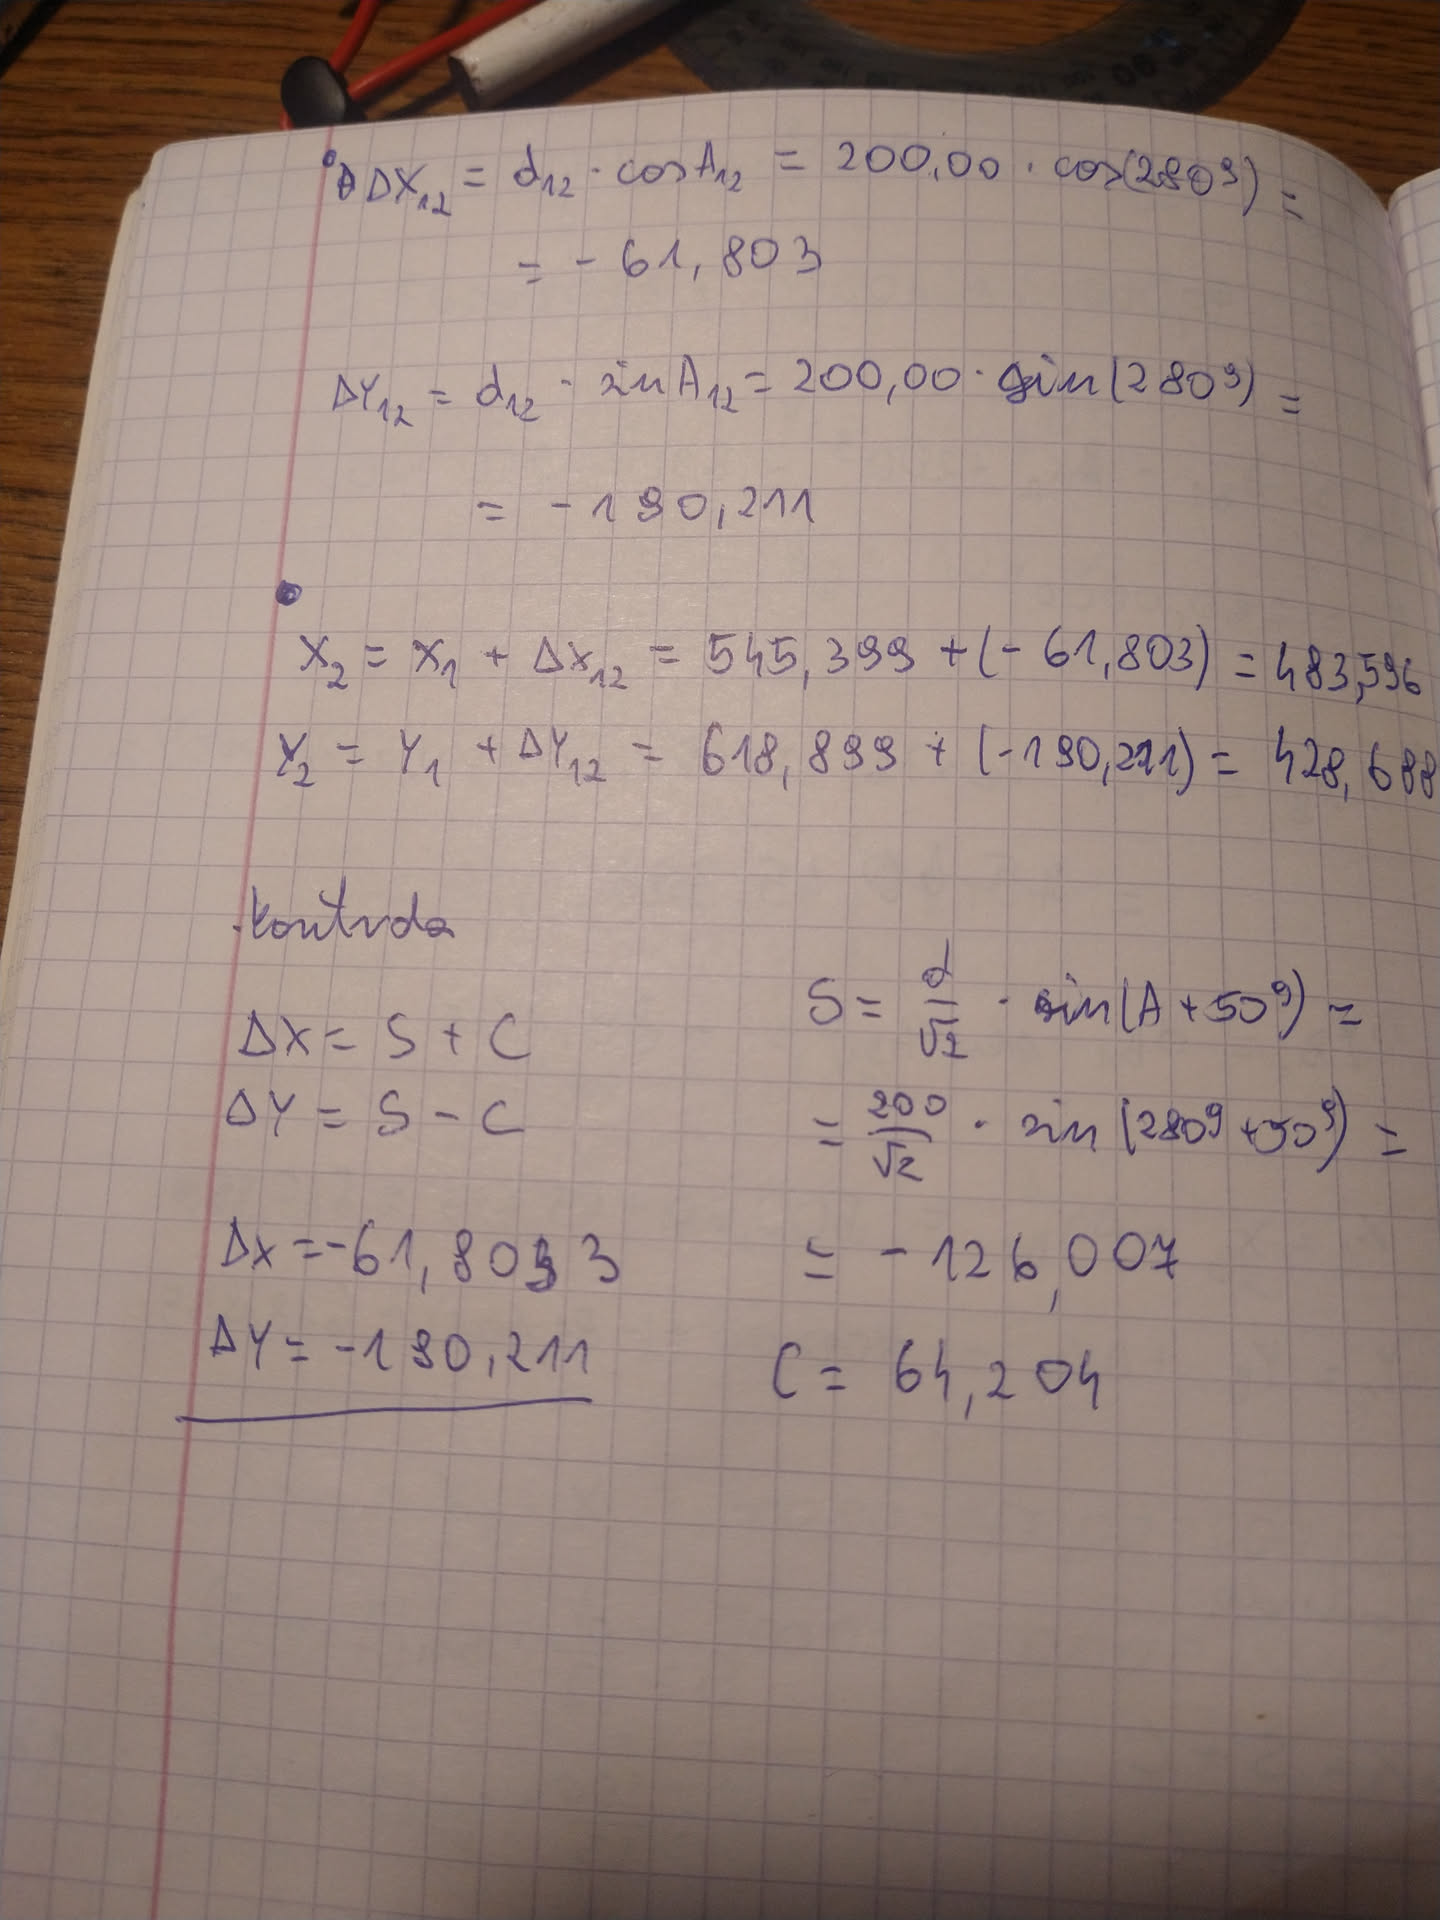 ΔX₁₂ = d₁₂ · cosA₁₂ = 200,00 · cos(280ᵍ) =
= - 61,803
ΔY₁₂ = d₁₂ · sinA₁₂ = 200,00 · sin(280ᵍ) =
= - 190,211
X₂ = X₁ + Δx₁₂ = 545,399 + (- 61,803) = 483,596
Y₂ = Y₁ + ΔY₁₂ = 618,899 + (-190,211) = 428,688
kontrola
ΔX = S + C
ΔY = S - C
Δx = -61,803
ΔY = -190,211
S = d/√2 · sin(A + 50ᵍ) =
= 200/√2 · sin (280ᵍ + 50ᵍ) =
= - 126,007
C = 64,204